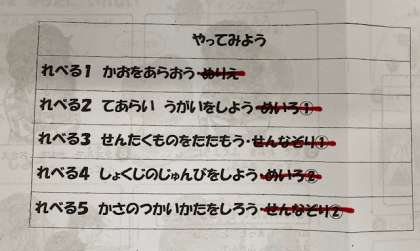 やってみよう
れべる1 かおをあらおう・ぬりえ
れべる2 てあらい うがいをしよう・めいろ①
れべる3 せんたくものをたたもう・せんなぞり①
れべる4 しょくじのじゅんびをしよう・めいろ②
れべる5 かさのつかいかたをしろう・せんなぞり②